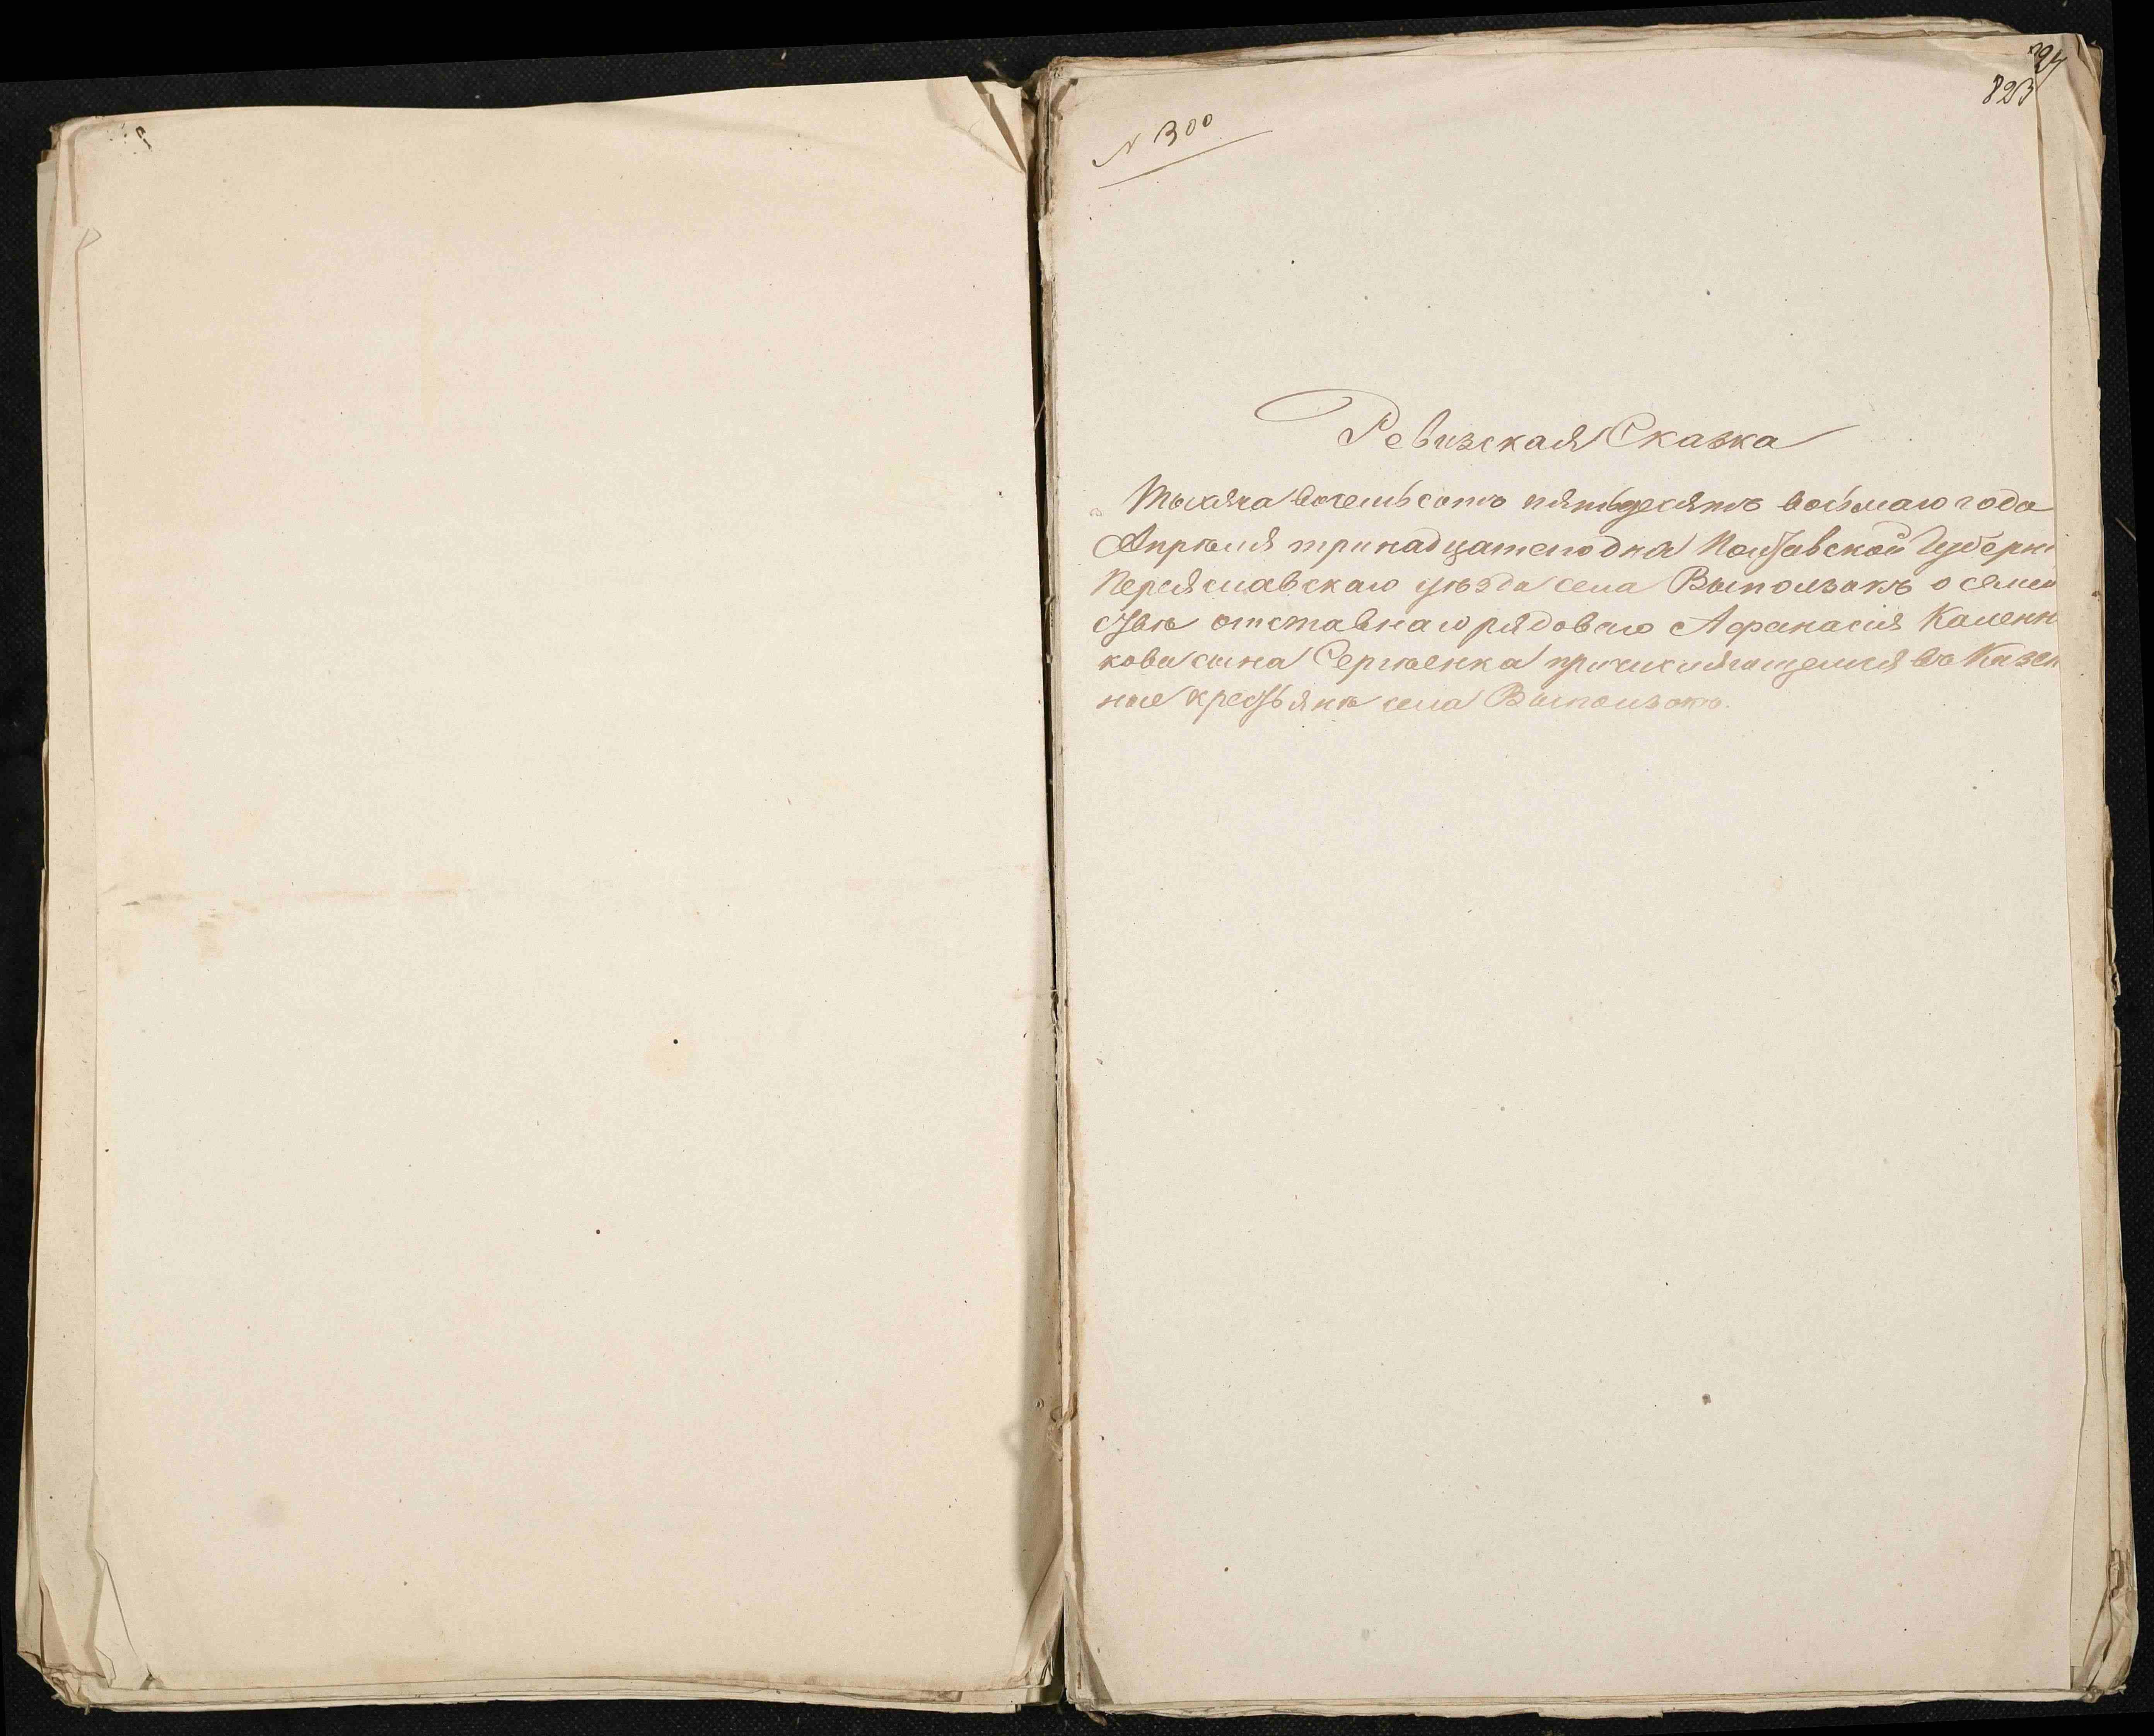 823
N 300
Ревизская Сказка
Тысяча восемьсотъ пятьдесятъ восьмаго года
Апрѣля тринадцатаго дня Полтавской Губерні
Переяславскаго уѣзда села Выползокъ о семей
ствѣ отставнаго рядоваго Афанасія Каленни
кова сына Сергѣенка причисляющемся въ Казен
ные крестьяне села Выползокъ.